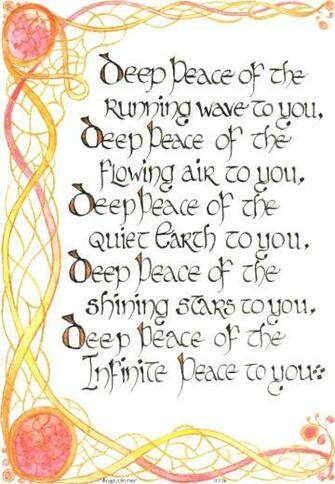 Deep Peace of the
Running wave to you,
Deep Peace of the
flowing air to you,
Deep Peace of the
quiet Earth to you,
Deep Peace of the
shining stars to you,
Deep Peace of the
Infinite Peace to you